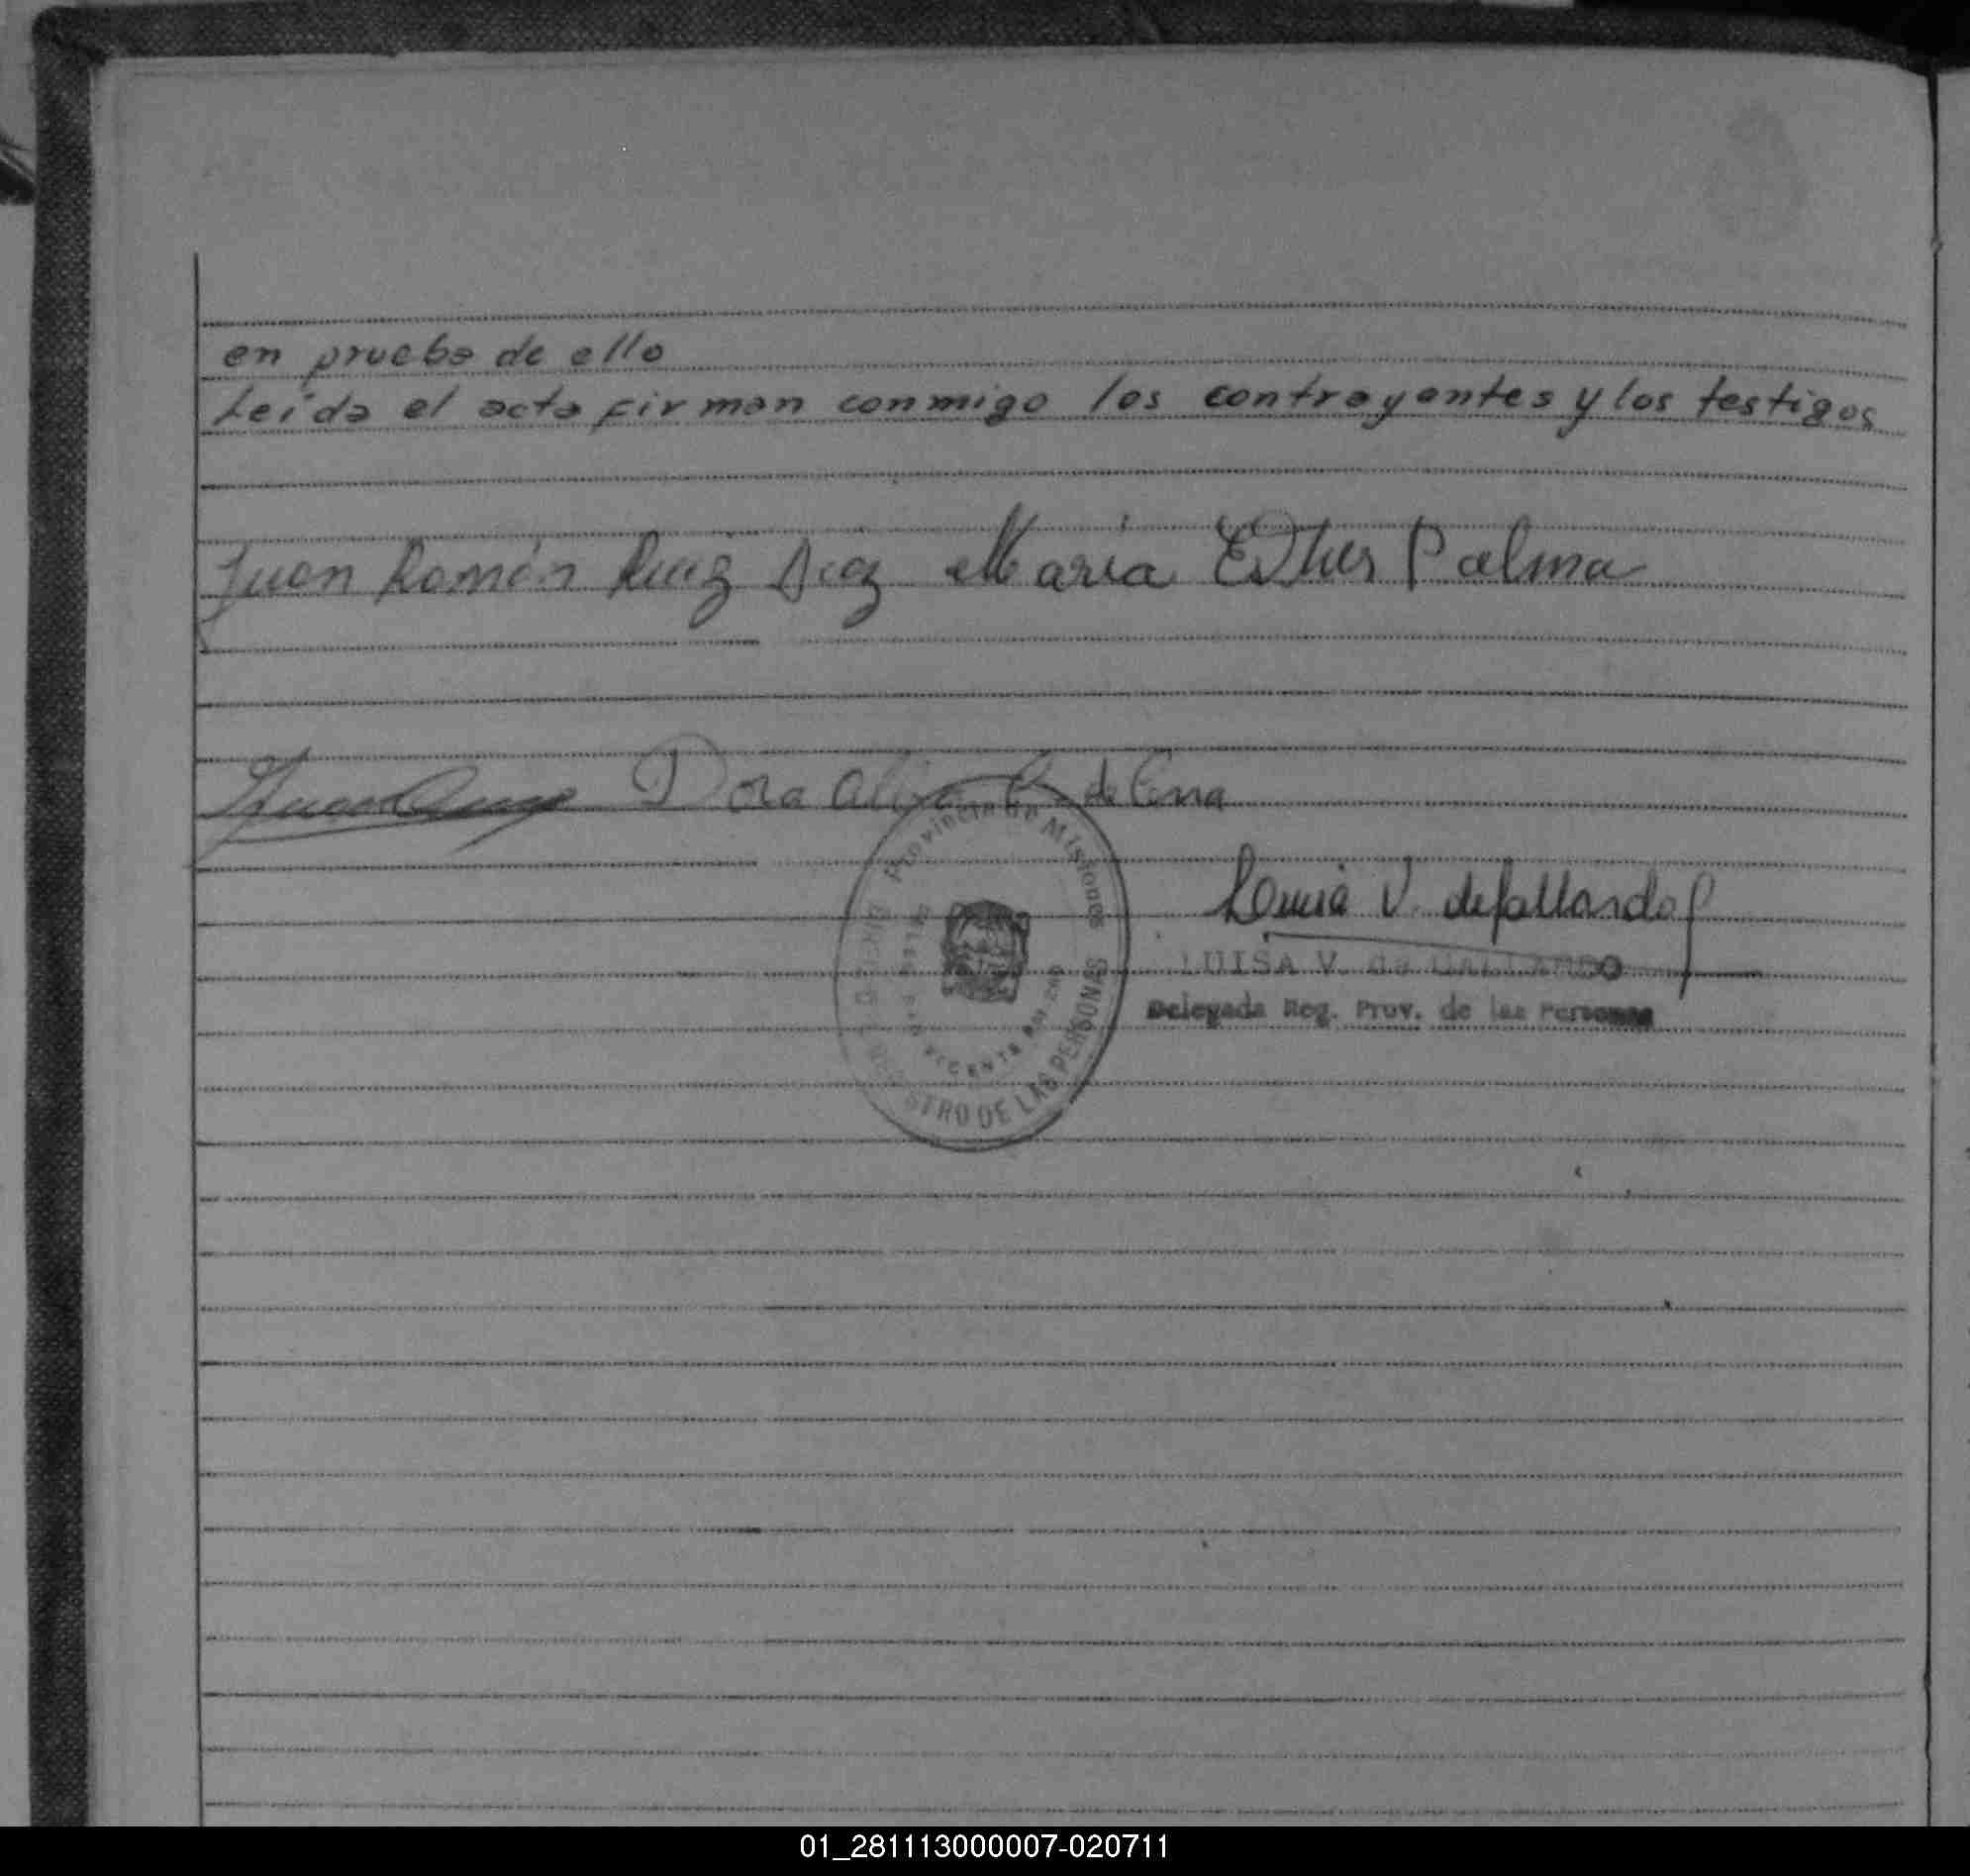 en prueba de ello
Leída el acta firman conmigo los contrayentes y los testigos
Juan Ramón Ruiz Diaz María Esther Palma
Dora de
Provincia de Misiones
Luisa V. de Gallardo
LUISA V. de GALLARDO
Delegada Reg. Prov. de las Personas
SAN VICENTE
REGISTRO DE LAS PERSONAS
01_281113000007-020711